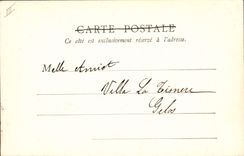 CARTE POSTALE
Ce côté est exclusivement réservé à l'adresse.
Melle Amiot
Villa La
Gelos